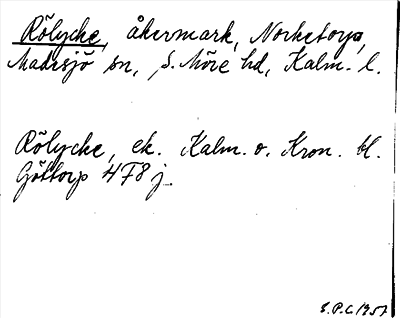 Rölycke, åkermark, Norketorp,
Madesjö sn, S. Möre hd, Kalm. l.
Rölycke, ek. Kalm. o. Kron. bl.
Göttorp 478 j.
S.P.C. 1957